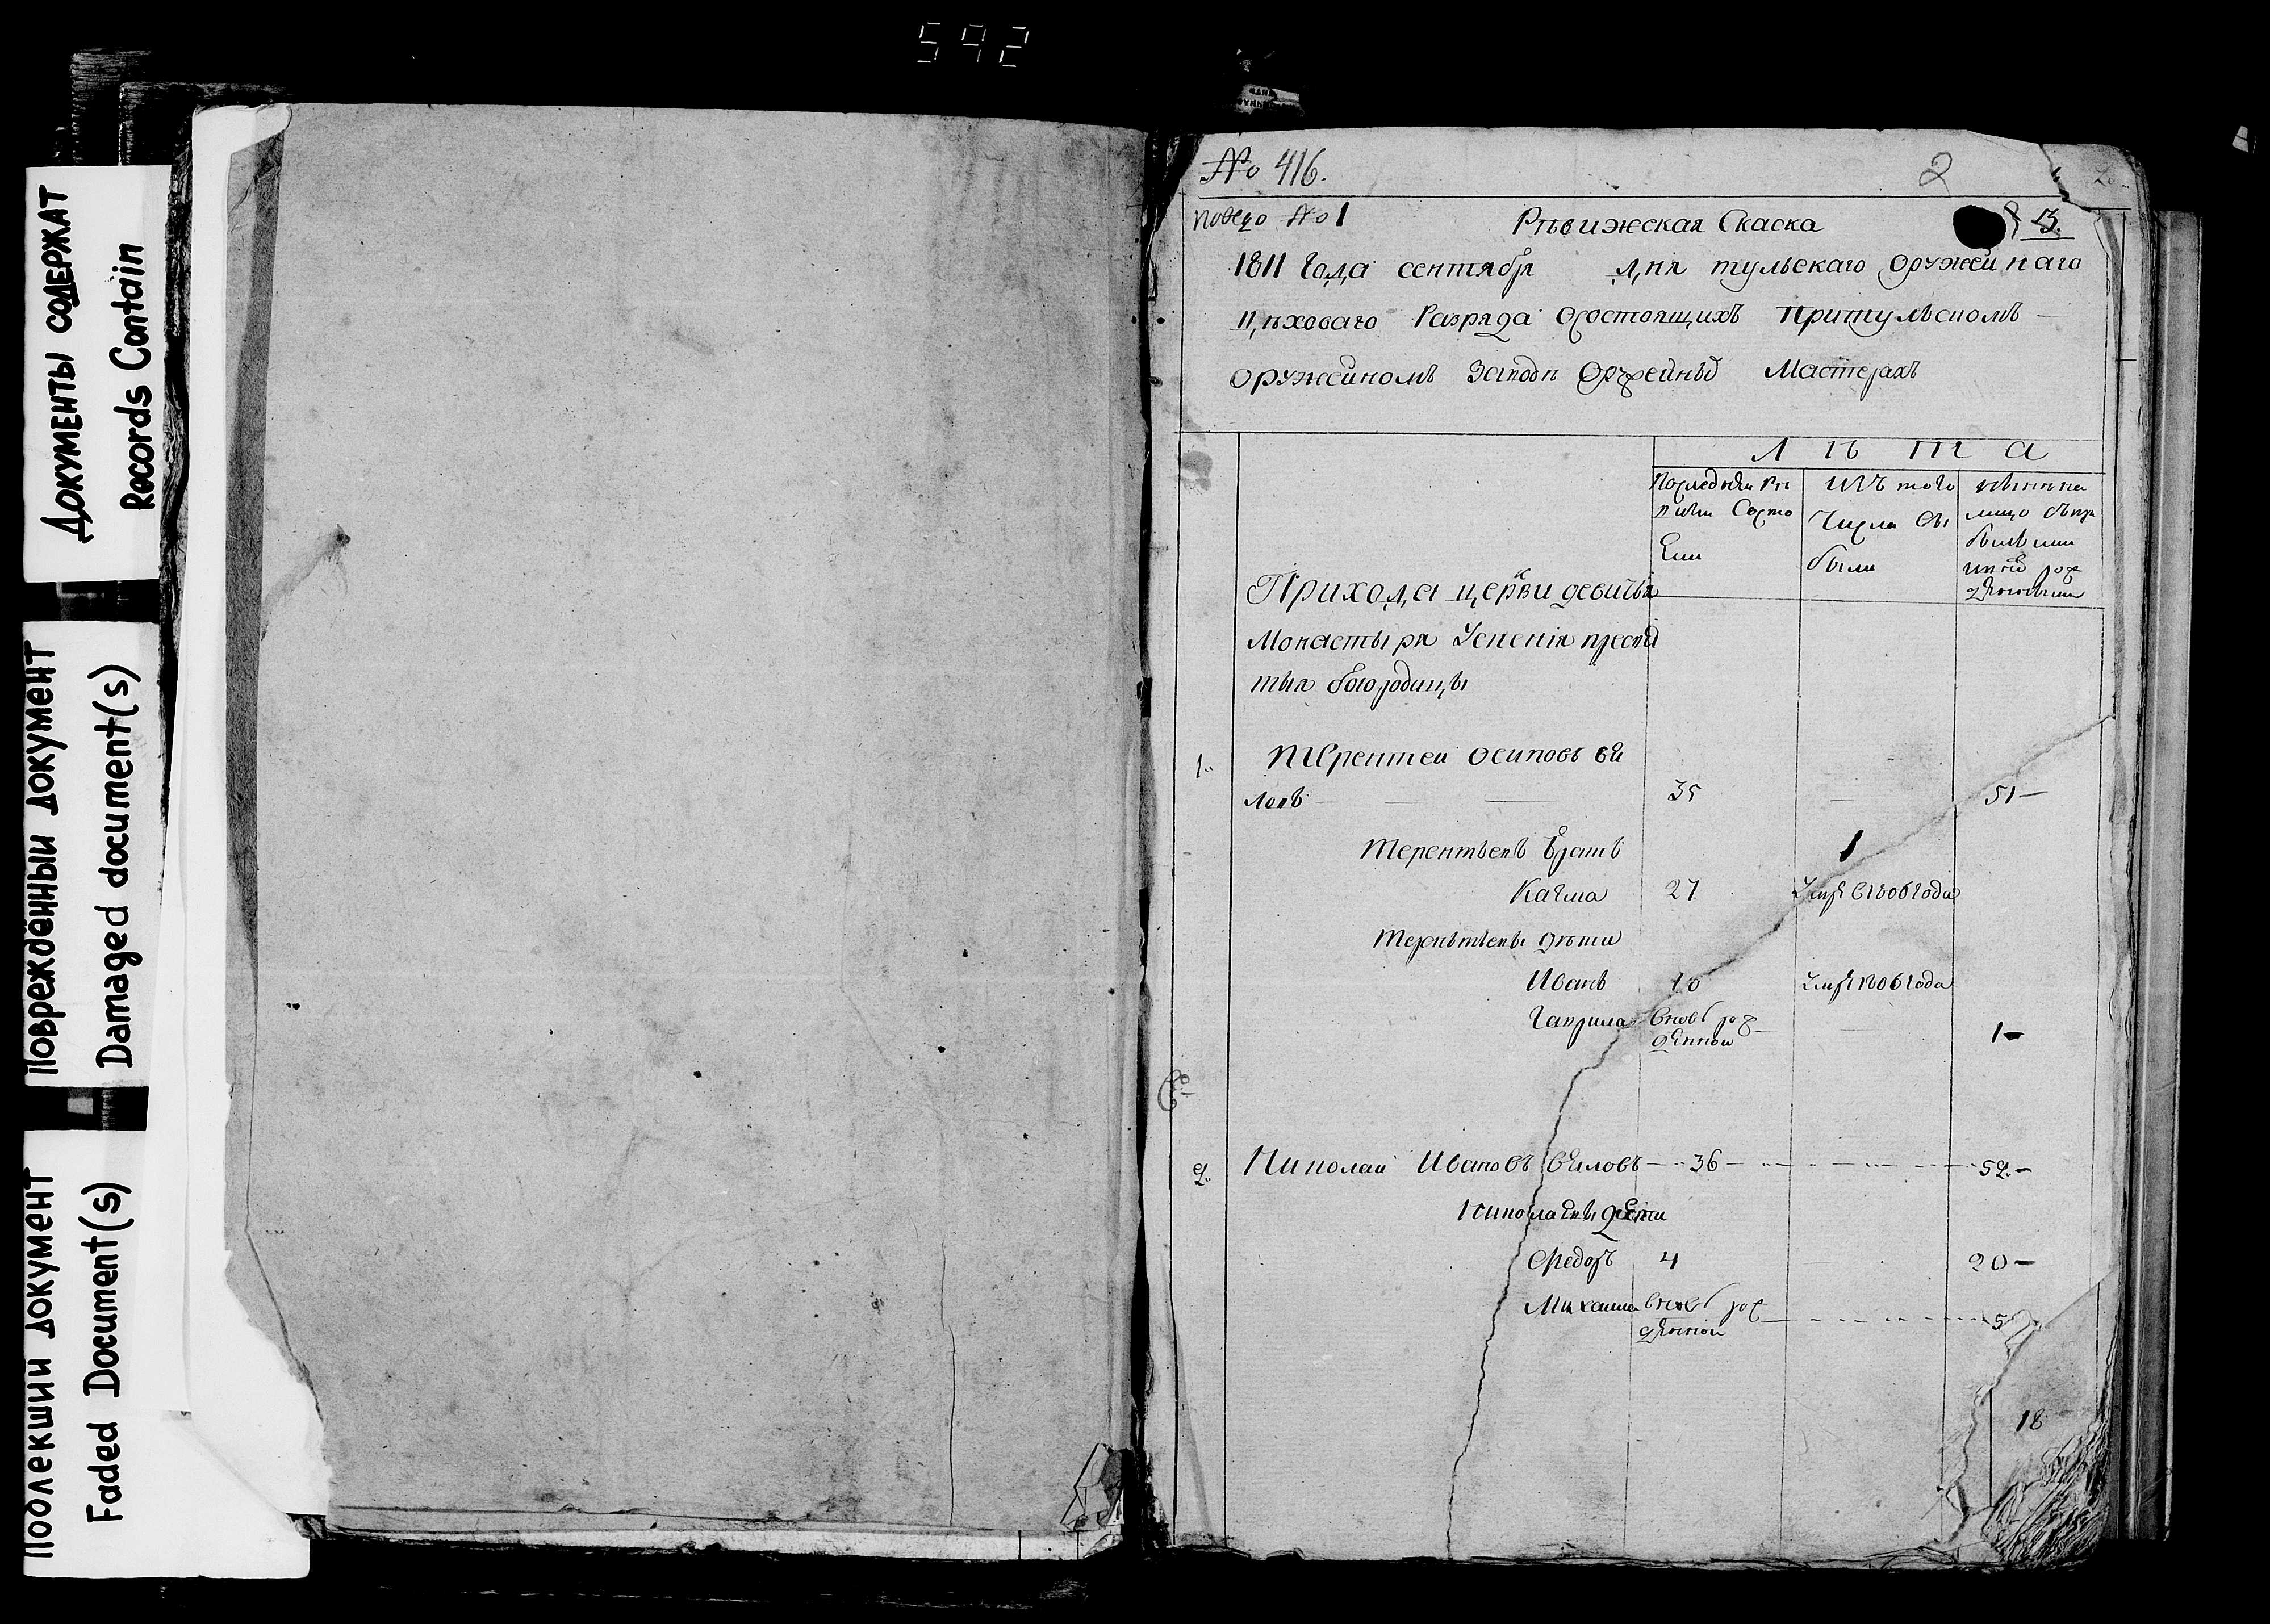 592
ДОКУМЕНТЫ СОДЕРЖАТ
Records Contain
ПОВРЕЖДЁННЫЙ ДОКУМЕНТ
Damaged document(s)
ПОБЛЕКШИЙ ДОКУМЕНТ
Faded Document(s)
№ 416.
2
№ 1
Рѣвижская Скаска
1811 Года сентября дня тульскаго Оружейнаго
цѣховаго Разряда Осостоящихъ притульскомъ
оружейномъ Заводѣ Оружейныхъ Мастерахъ
Лѣта
Последней ре
визии Состо
яли
изъ того
Числа вы
были
лицо
Прихода церкви девичья
Монастыря Успения пресвя
тыя богородицы
1. Терентей осиповъ бе
ловъ 35 51
Терентьевъ братъ 1
Казма 27 умре в 1806 года
Терентьевы дети
Иванъ 10 умре 1806 года
Гаврила вновь рож
денной 1
2. Николай Ивановъ беловъ 36 52
Николаевы дети
Федоръ 4 20
Михаила вновь рож
денной 5
18